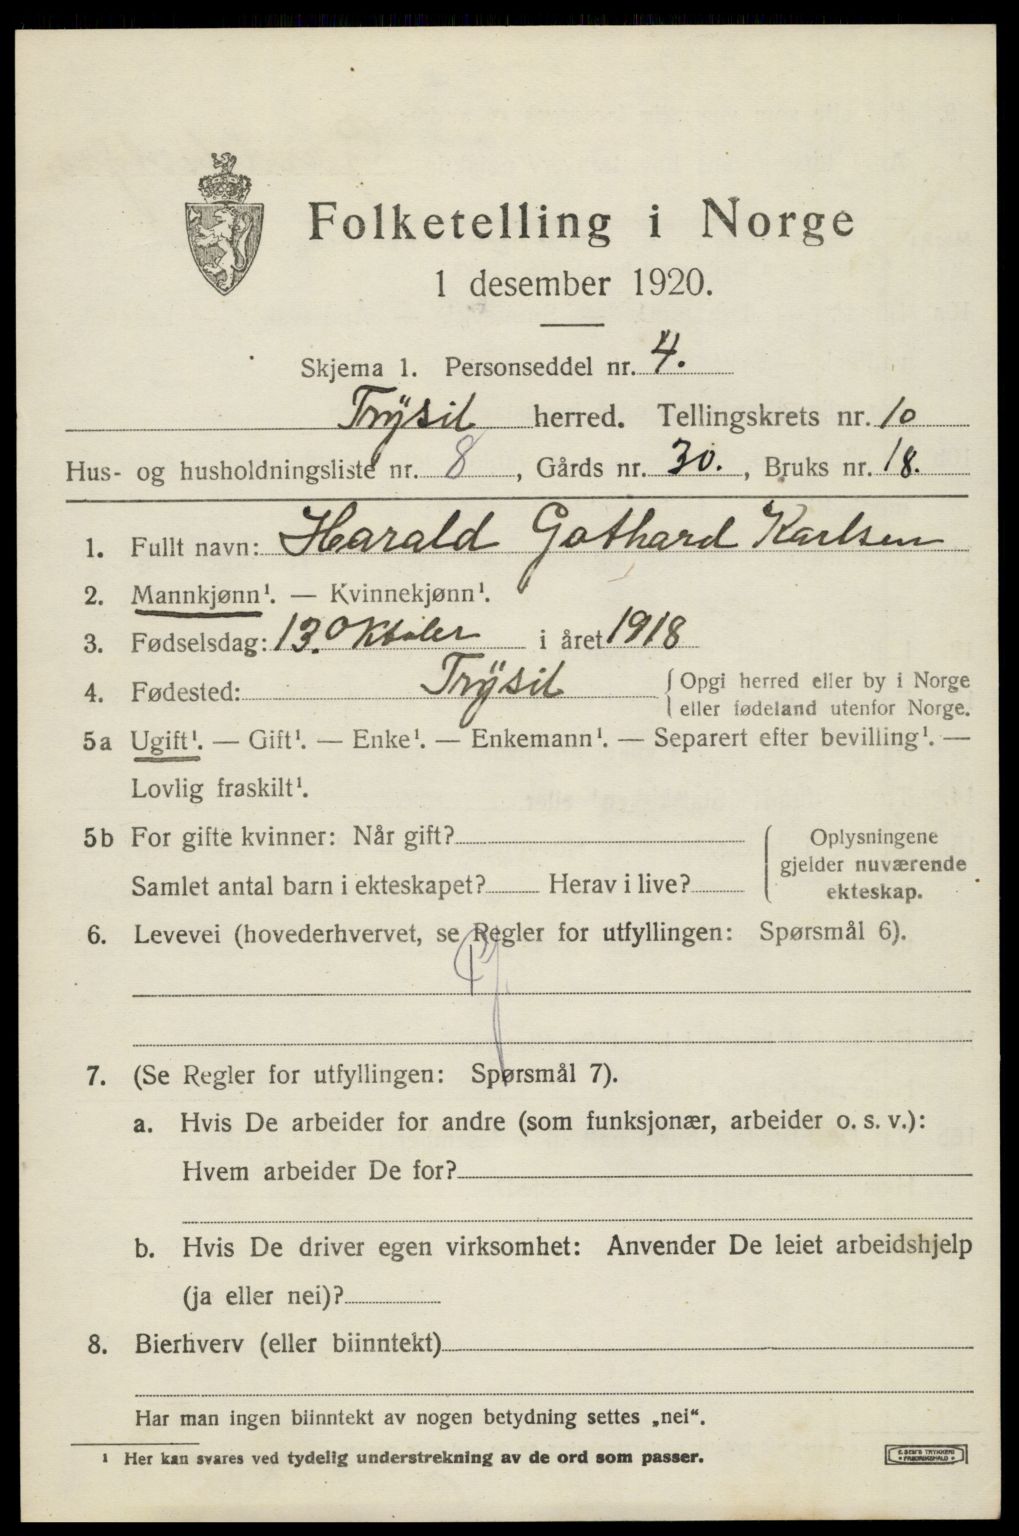 Folketelling i Norge
1 desember 1920.
Skjema 1. Personseddel nr. 4.
Trysil herred. Tellingskrets nr. 10
Hus- og husholdningsliste nr. 8, Gårds nr. 30., Bruks nr. 18.
1. Fullt navn: Harald Gothard Karlsen
2. Mannkjønn¹. — Kvinnekjønn¹.
3. Fødselsdag: 13. Oktober i året 1918
4. Fødested: Trysil { Opgi herred eller by i Norge
eller fødeland utenfor Norge.
5a Ugift¹. — Gift¹. — Enke¹. — Enkemann¹. — Separert efter bevilling¹. —
Lovlig fraskilt¹.
5b For gifte kvinner: Når gift?
Samlet antal barn i ekteskapet? Herav i live?
{ Oplysningene
gjelder nuværende
ekteskap.
6. Levevei (hovederhvervet, se Regler for utfyllingen: Spørsmål 6).
7. (Se Regler for utfyllingen: Spørsmål 7).
a. Hvis De arbeider for andre (som funksjonær, arbeider o. s. v.):
Hvem arbeider De for?
b. Hvis De driver egen virksomhet: Anvender De leiet arbeidshjelp
(ja eller nei)?
8. Bierhverv (eller biinntekt)
Har man ingen biinntekt av nogen betydning settes „nei“.
¹ Her kan svares ved tydelig understrekning av de ord som passer.